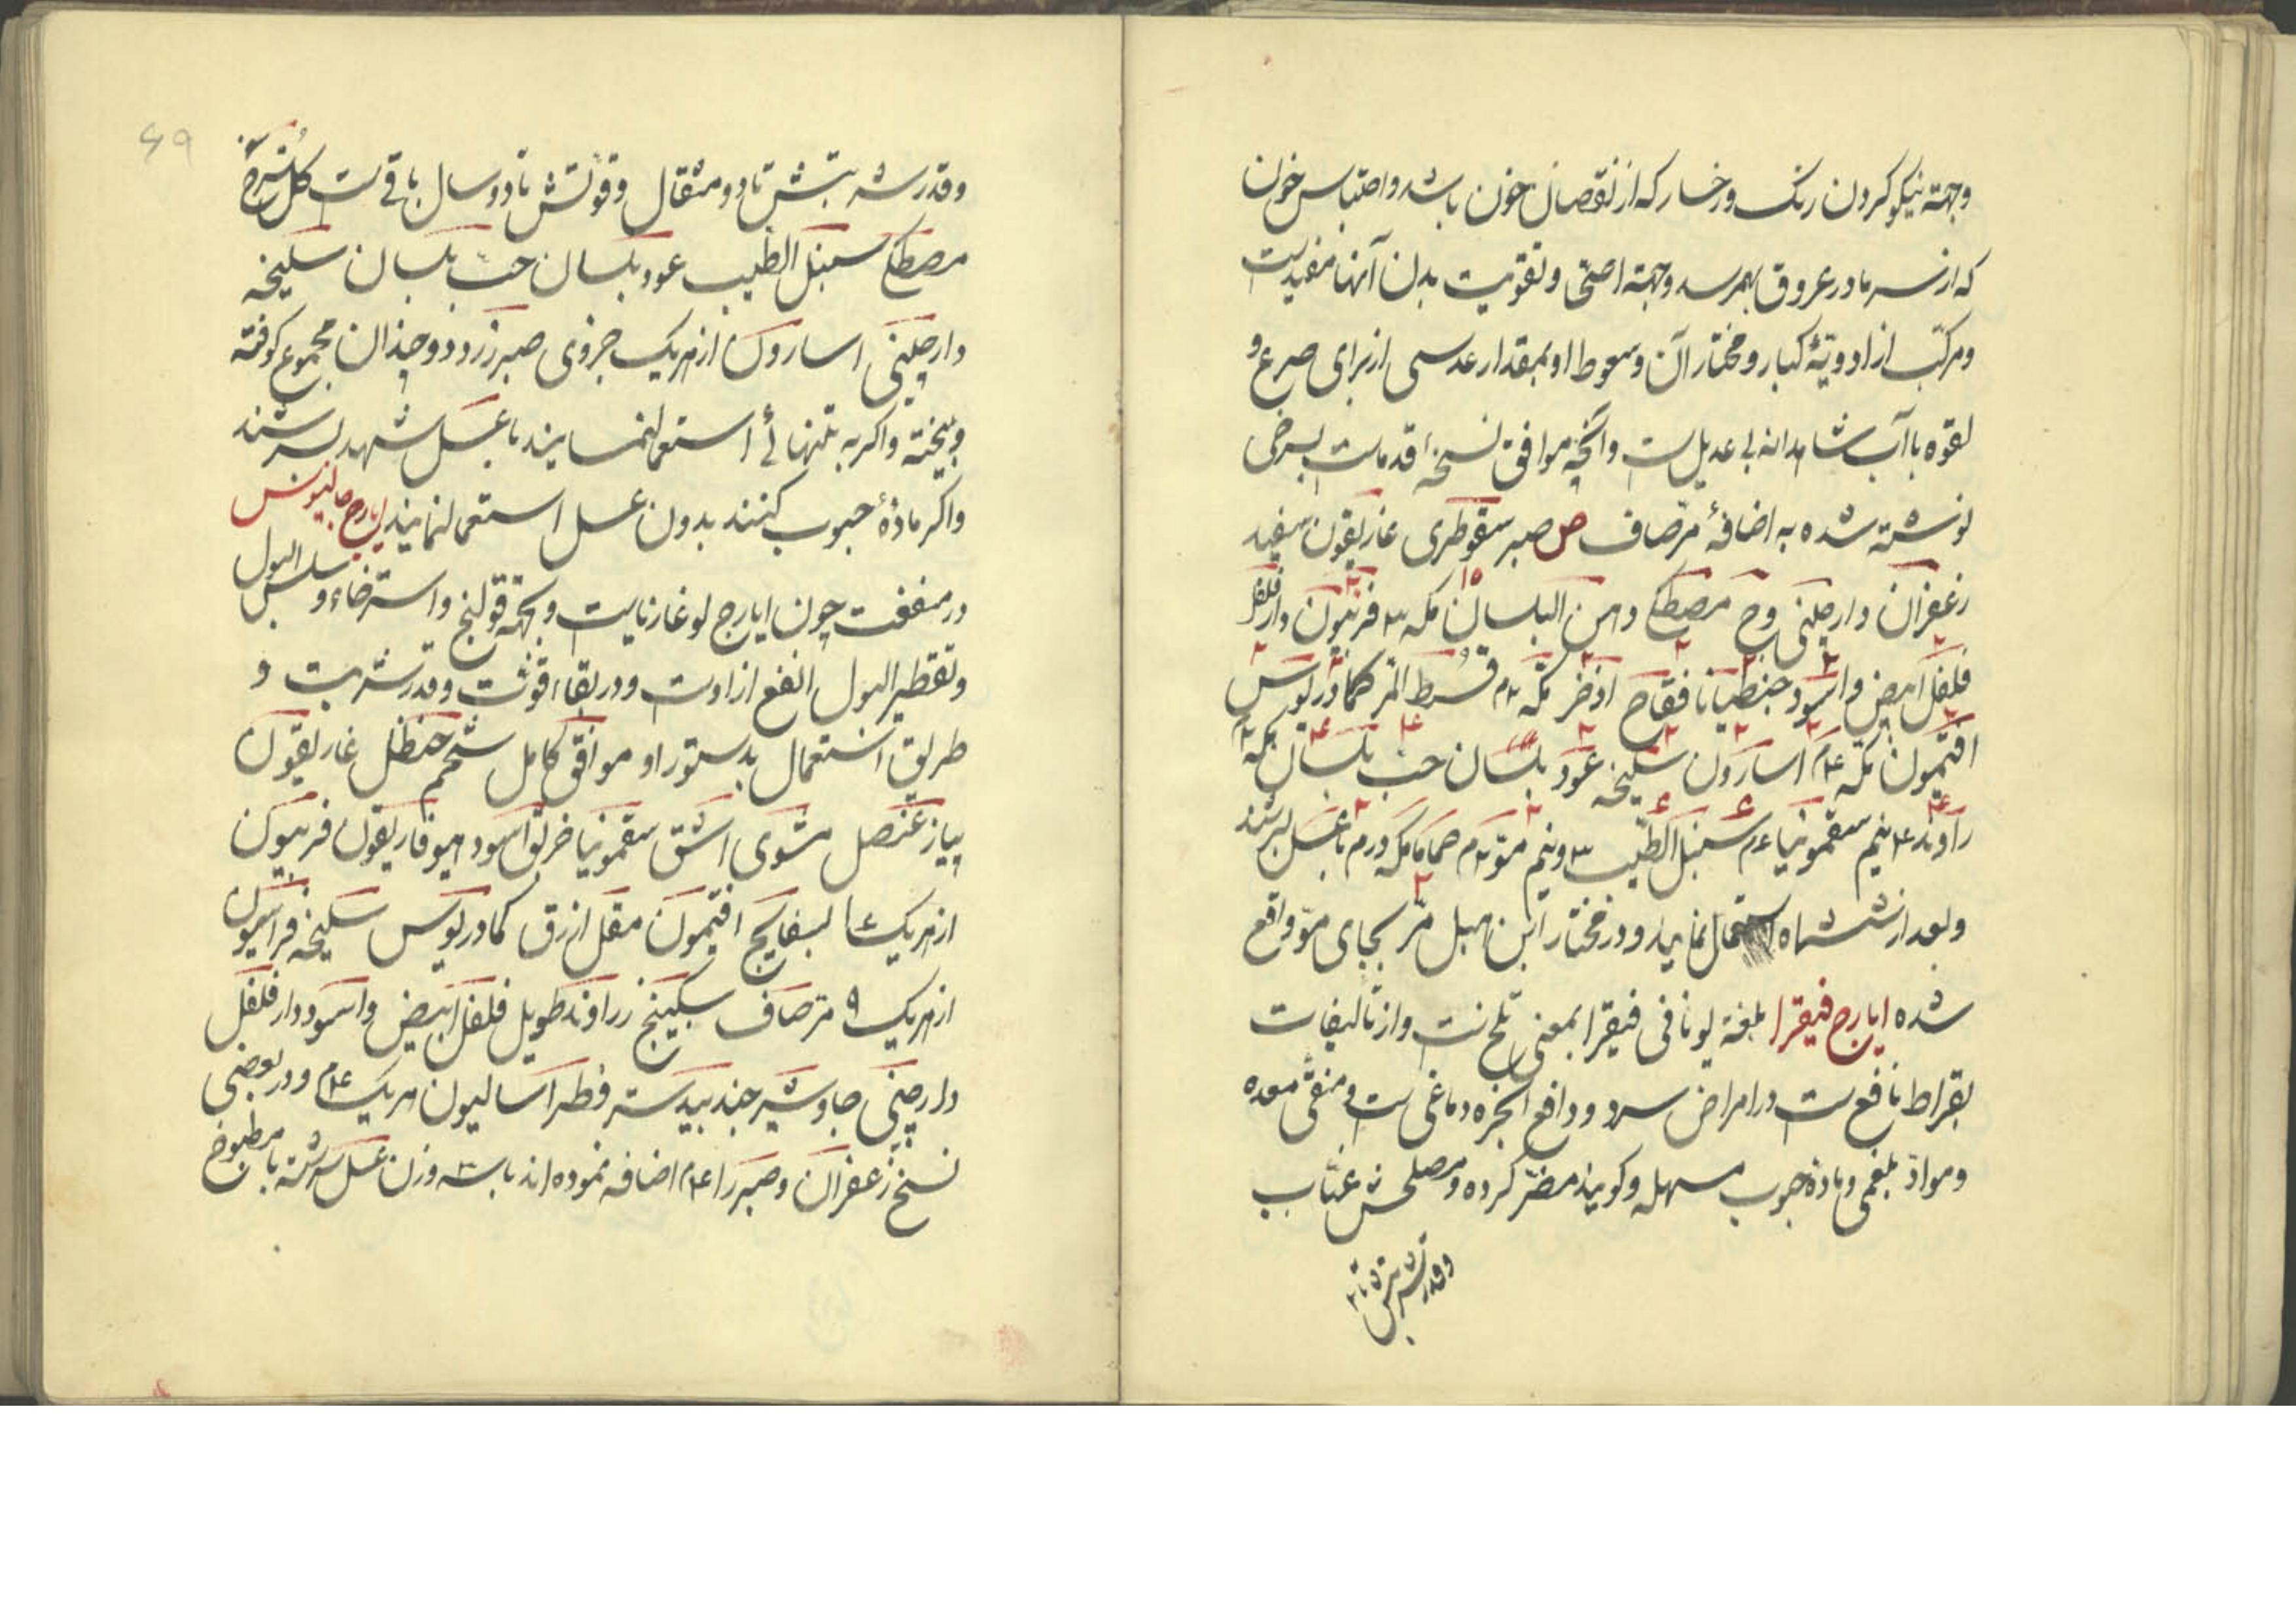 وجهة نیکو کردن رنک و رخسار که از نقصان خون باشد و احتباس خون
که از سرما در عروق بهمرسد وجهة اصحی و تقویت بدن آنها مفیدست
ومرکب از ادویهٔ کبار و مختار آن وسعوط او بمقدار عدسی از برای صرع و
لقوه باآب شاهدانه بی عدیل ست وآنچه موافق نسخهٔ قدماست برخی
نوشته شده به اضافهٔ مرّصاف ص صبر سقوطری غاریقون سفید
زعفران دارچینی وج مصطکی دهن البلسان مکد ۳ فربیون دارفلفل
فلفل ابیض واسود جنطیانا فقاح اذخر مکد ۲م قسط المر کمادریوس
افتیمون مکد ۴م اسارون سلیخه عود بلسان حب بلسان مکد ۲
راوند ۴ نیم سقمونیا ۶م سنبل الطیب ۳ ونیم موّ ۲م حماما مکدرم باعسل بسرشند
وبعد از ششماه استعمال نمایند و در مختار ابن هبل مرّ بجای موّ واقع
شده ایارج فیقرا بلغة یونانی فیقرا بمعنی تلخ ست واز تالیفات
بقراط نافع ست در امراض سرد ودافع ابخره دماغی ست و منقّی معده
ومواد بلغمی ومادهٔ حبوب مسهله وکویند مضرّ کرده و مصلحش عنّاب
وقدر شربتش تا ۲
۶۹
وقدر شربتش تا دو مثقال وقوتش تا دو سال باقی ست کل سرخ
مصطکی سنبل الطیب عود بلسان حب بلسان سلیخه
دارچینی اسارون از هریک جزوی صبر زرد دو چندان مجموع کوفته
وبیخته واکر به تنهائی استعمالنمایند باعسل شهد بسرشند
واکر مادهٔ حبوب کنند بدون عسل استعمالنمایند ایارج جالینوس
در منفعت چون ایارج لوغازیاست وبجهة قولنج واسترخاء و سلس البول
وتقطیر البول انفع از اوست ودر بقاء قوت وقدر شربت و
طریق استعمال بدستور او موافق کامل شحم حنظل غاریقون
پیاز عنصل مشوی اشق سقمونیا خربق اسود هیوفاریقون فربیون
از هریک ۱۶ بسفایج افتیمون مقل ازرق کمادریوس سلیخه فراسیون
از هریک ۹ مرّصاف سکبینج زراوند طویل فلفل ابیض واسود دارفلفل
دارچینی جاوشیر جندبیدستر فطراسالیون هریک ۴م ودر بعضی
نسخ زعفران وصبر را ۴م اضافه نموده اند باسه وزن عسل سرشته با مطبوخ